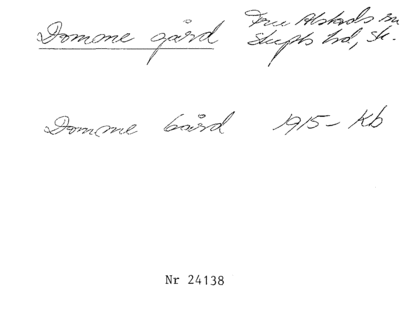 Domme gård Fru Alstads sn
Skytts hd, Sk.
Domme gård 1915- Kb
Nr 24138